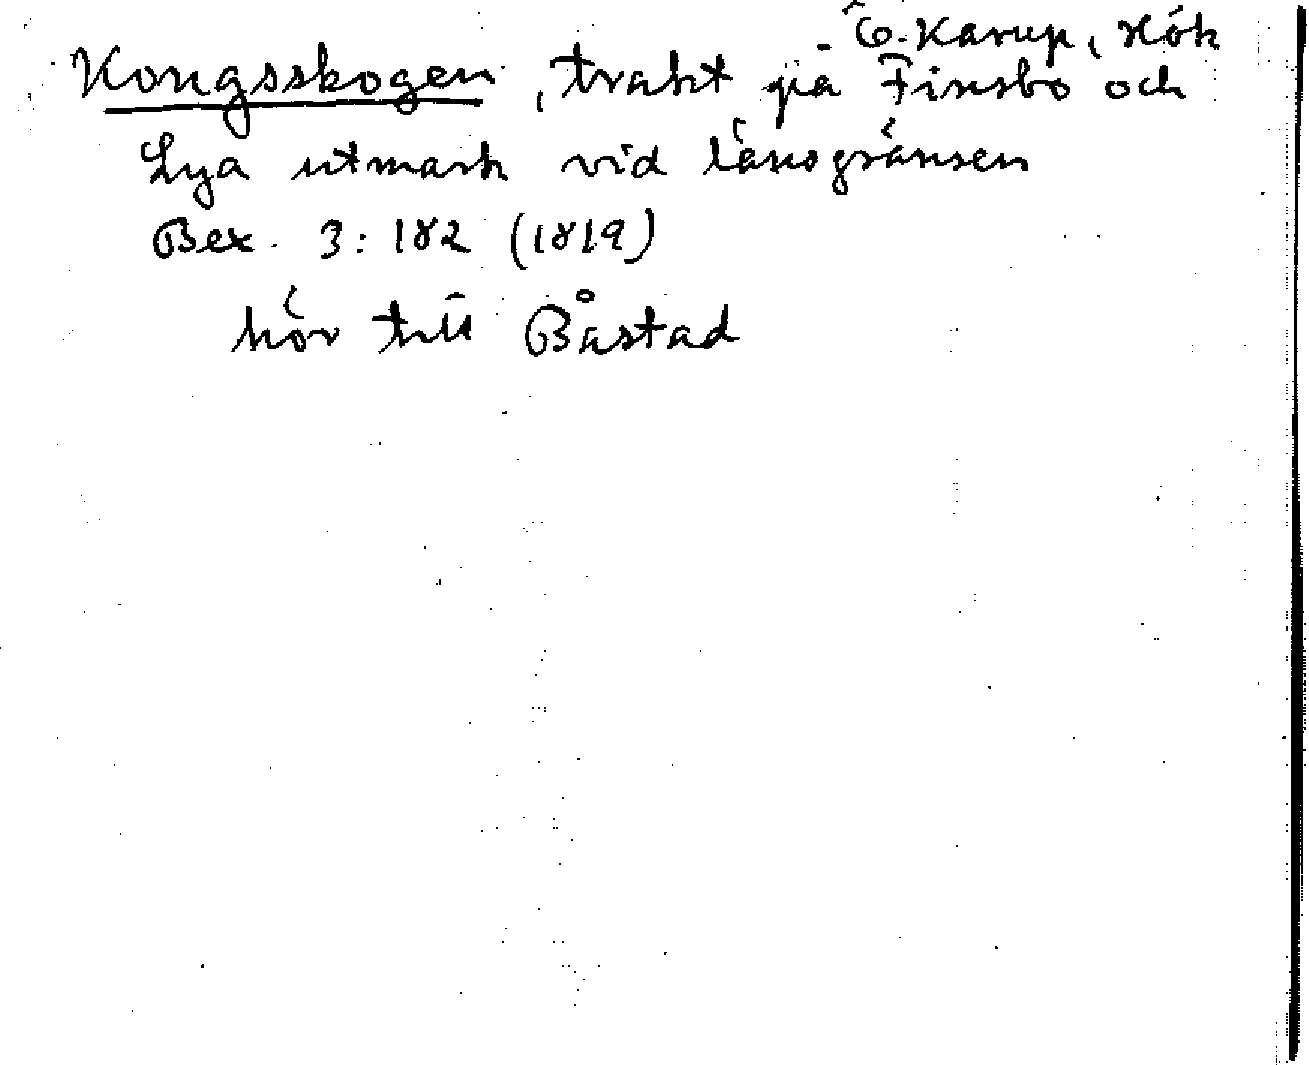 Ö. Karup, Hök
Kongsskogen, trakt på Finsbo och
Lya utmark vid länsgränsen
Bex. 3:182 (1819)
hör till Båstad